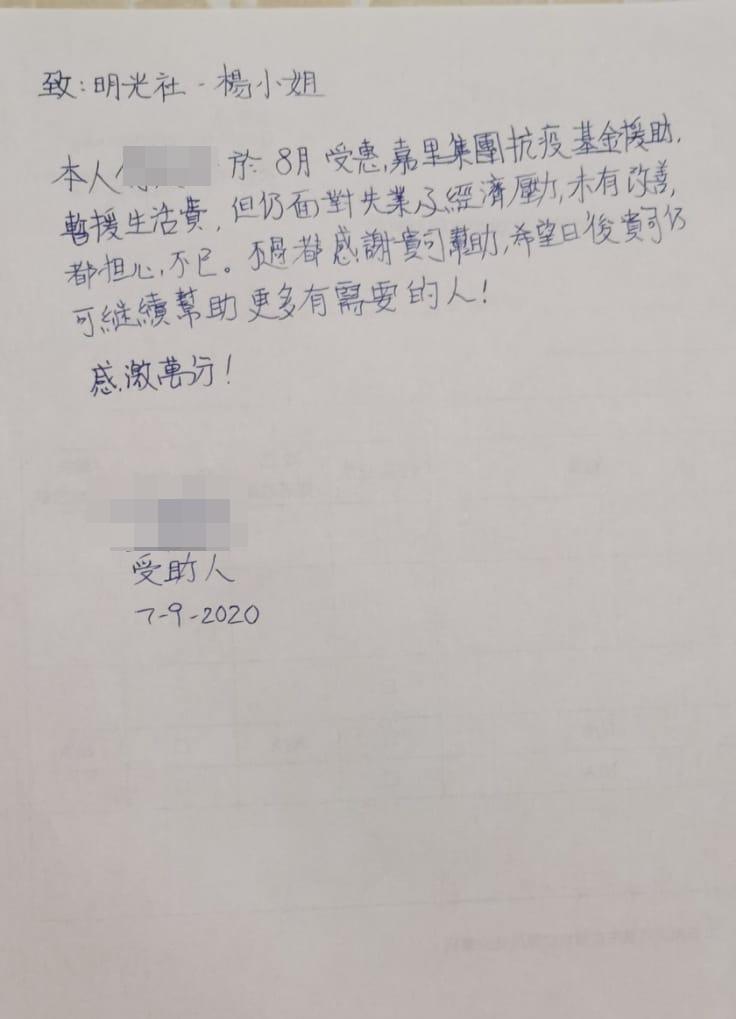 致:明光社 - 楊小姐
本人 於 8月 受惠,嘉里集團抗疫基金援助,
暫援生活費,但仍面對失業及經濟壓力,未有改善,
都担心不已。不過都感謝貴司幫助,希望日後貴司仍
可継續幫助更多有需要的人!
感激萬分!
受助人
7-9-2020